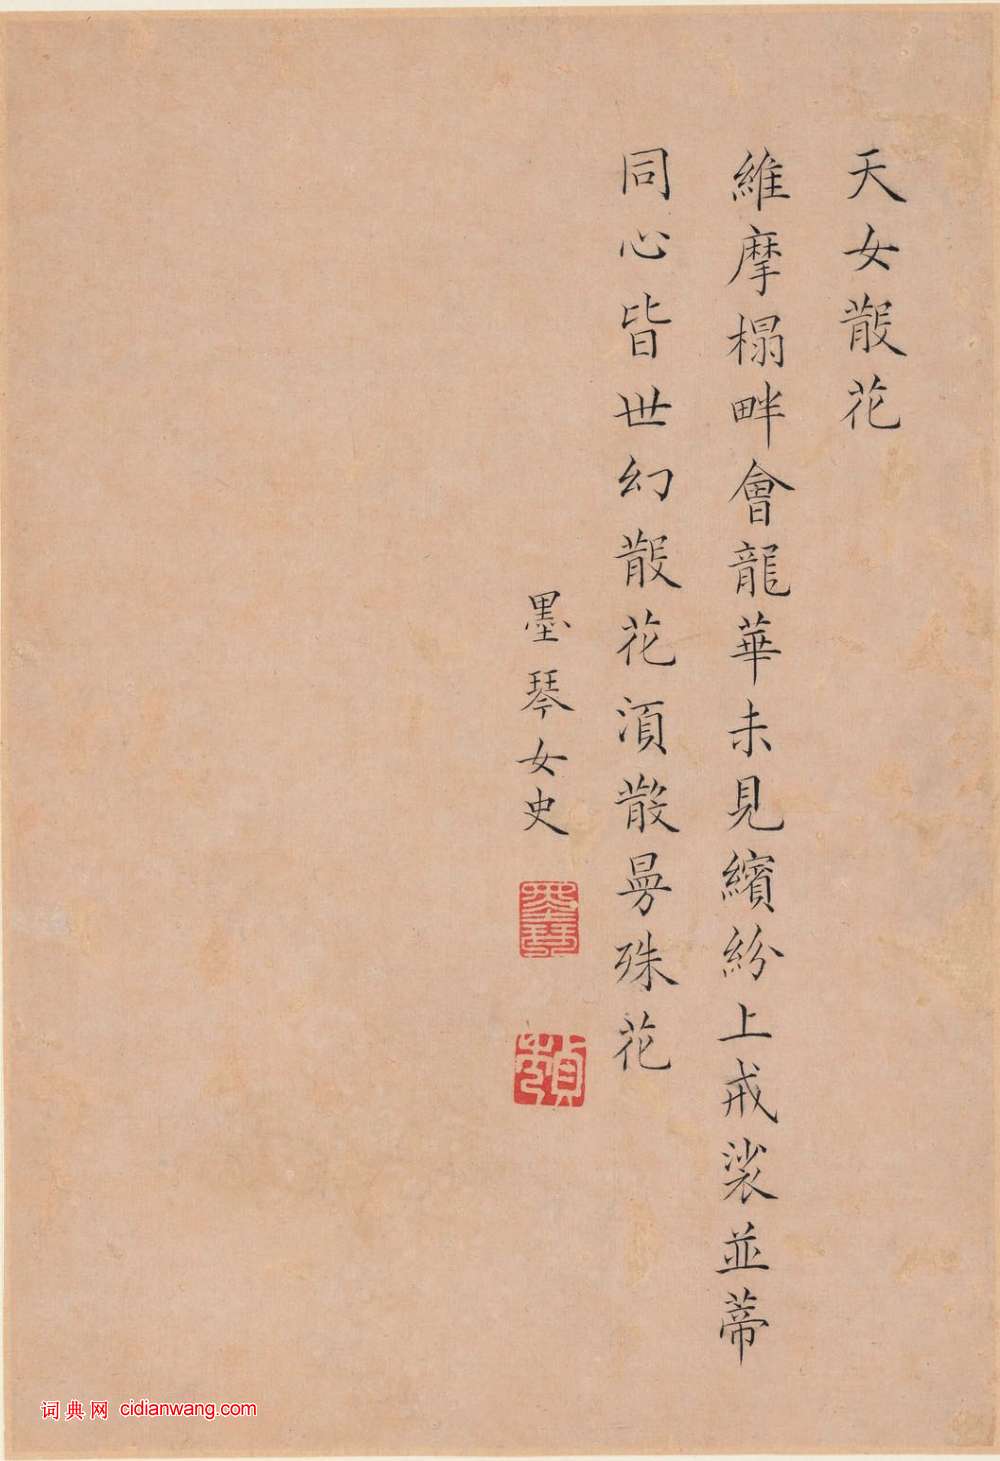 天女散花
維摩榻畔會龍華未見繽紛上戒裟並蒂
同心皆世幻散花須散曇殊花
墨琴女史
墨琴
詞典网 cidianwang.com